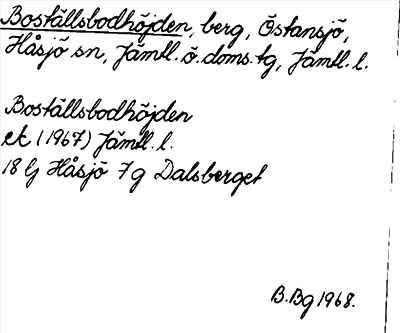 Boställsbodhöjden, berg, Östansjö,
Håsjö sn, Jämtl. ö. doms. tg, Jämtl. l.
Boställsbodhöjden
ek (1967) Jämtl. l.
18 G Håsjö 7 g Dalsberget
B. Bg 1968.